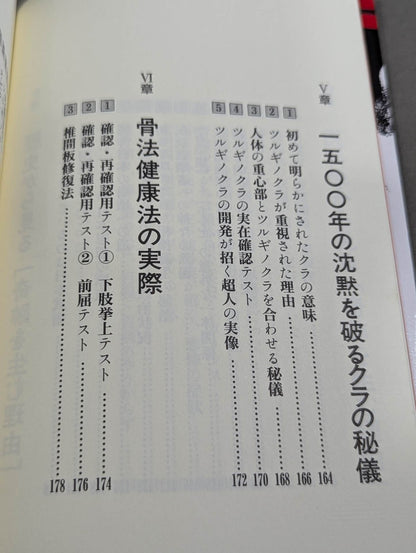 Ⅴ章 一五〇〇年の沈黙を破るクラの秘儀
1 初めて明らかにされたクラの意味 164
2 ツルギノクラが重視された理由 166
3 人体の重心部とツルギノクラを合わせる秘儀 168
4 ツルギノクラの実在確認テスト 170
5 ツルギノクラの開発が招く超人の実像 172
Ⅵ章 骨法健康法の実際
1 確認・再確認用テスト① 下肢挙上テスト 174
2 確認・再確認用テスト② 前屈テスト 176
3 椎間板修復法 178